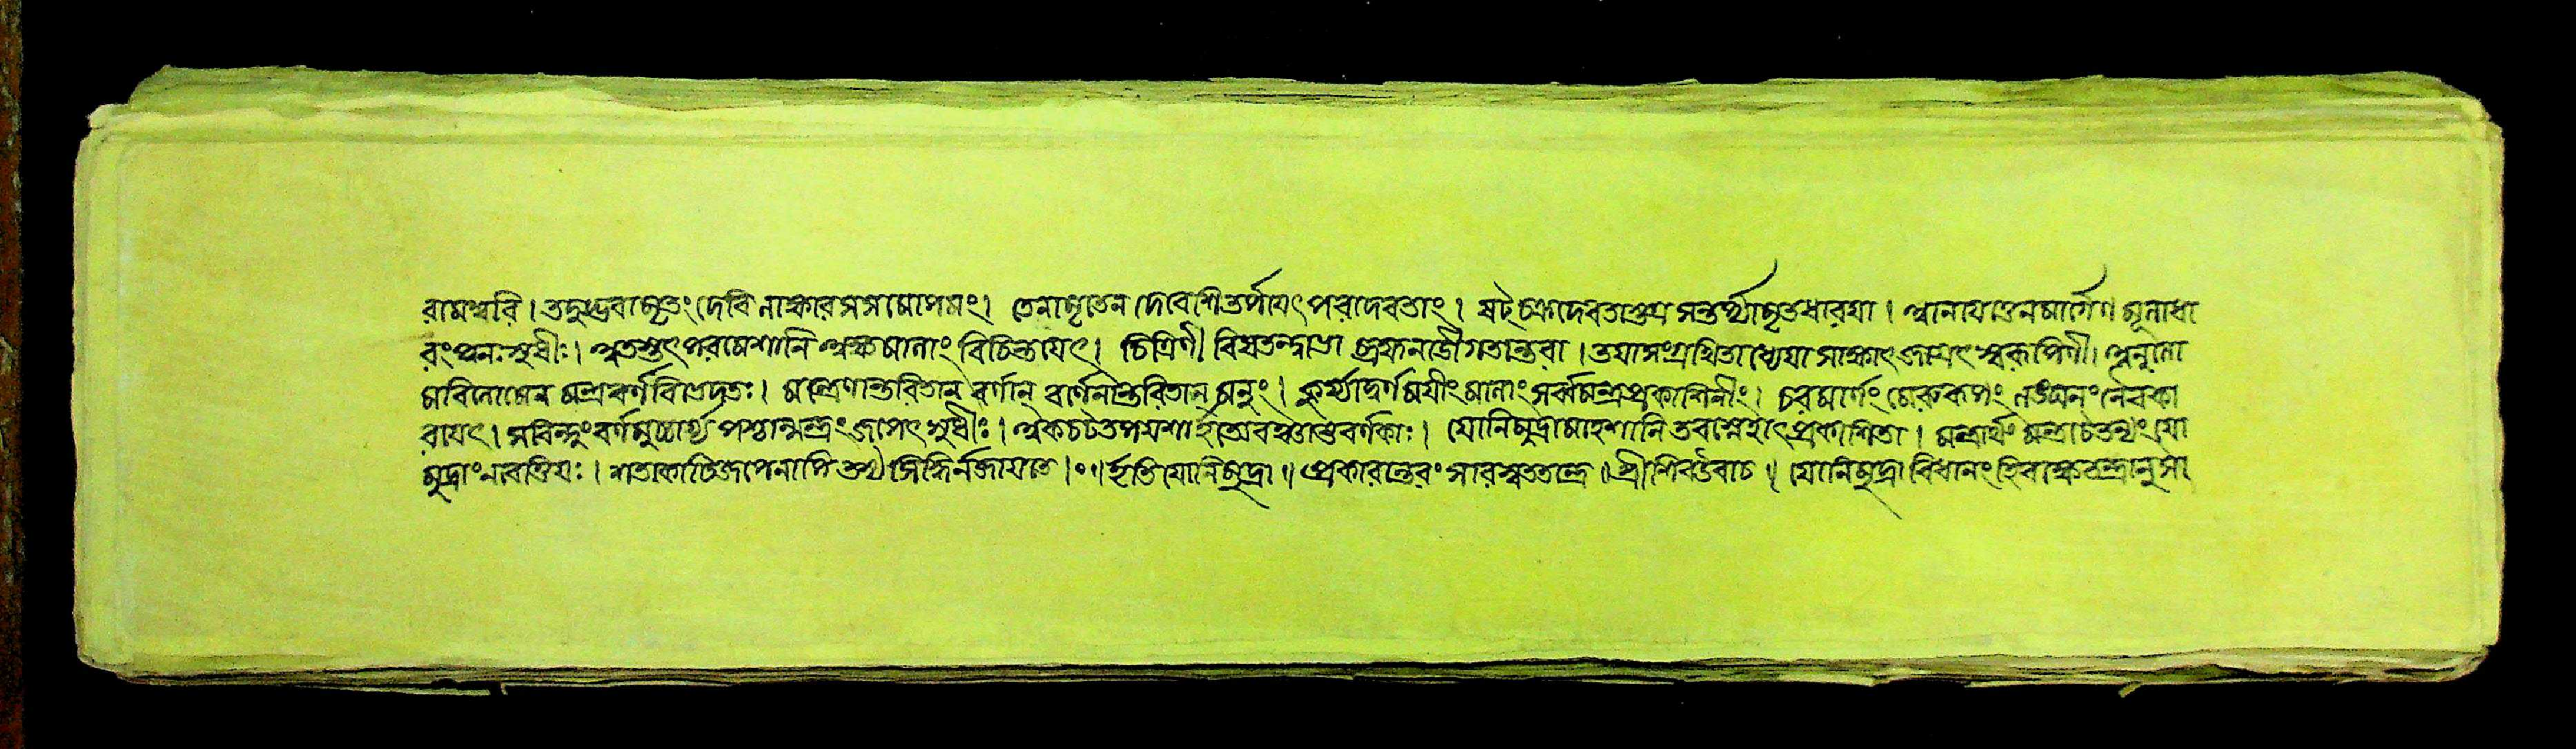 রামেশ্বরি। তদুদ্ভবামৃতং দেবি লাক্ষারসসমোপমং। তেনামৃতেন দেবেশি তর্পয়েৎ পরদেবতাং। ষট্চক্রদেবতাস্তত্র সন্তর্প্যামৃতধারয়া। আনয়েত্তেন মার্গেণ মূলাধা
রং পুনঃ সুধীঃ। অতস্তৎ পরমেশানি অক্ষমালাং বিচিন্তয়েৎ। চিত্রিণী বিসতন্ত্বাভা ব্রহ্মনাড়ীগতান্তরা। তয়া সংগ্রথিতা ধ্যেয়া সাক্ষাৎ জাগ্রৎস্বরূপিণী। অনুলো
মবিলোমেন মন্ত্রবর্ণবিভেদতঃ। মন্ত্রেণান্তরিতান্ বর্ণান্ বর্ণেনান্তরিতান্ মনুং। কুর্য্যাদ্বর্ণময়ীং মালাং সর্ব্বমন্ত্রপ্রকাশিনীং। চরমার্ণং মেরুরূপং লঙ্ঘনং নৈব কা
রয়েৎ। সবিন্দুং বর্ণমুচ্চার্য্য পশ্চান্মন্ত্রং জপেৎ সুধীঃ। অকচটতপযশা হ্যেতে অষ্টবর্গকাঃ। যোনিমুদ্রা মহেশানি তব স্নেহাৎ প্রকাশিতা। মন্ত্রার্থং মন্ত্রচৈতন্যং যো
মুদ্রাং ন বেত্তি যঃ। শতকোটিজপেনাপি তস্য সিদ্ধির্ন জায়তে।ঃ॥ ইতি যোনিমুদ্রা॥ প্রকারান্তরং সারস্বততন্ত্রে॥ শ্রীশিব উবাচ॥ যোনিমুদ্রা বিধানং হি